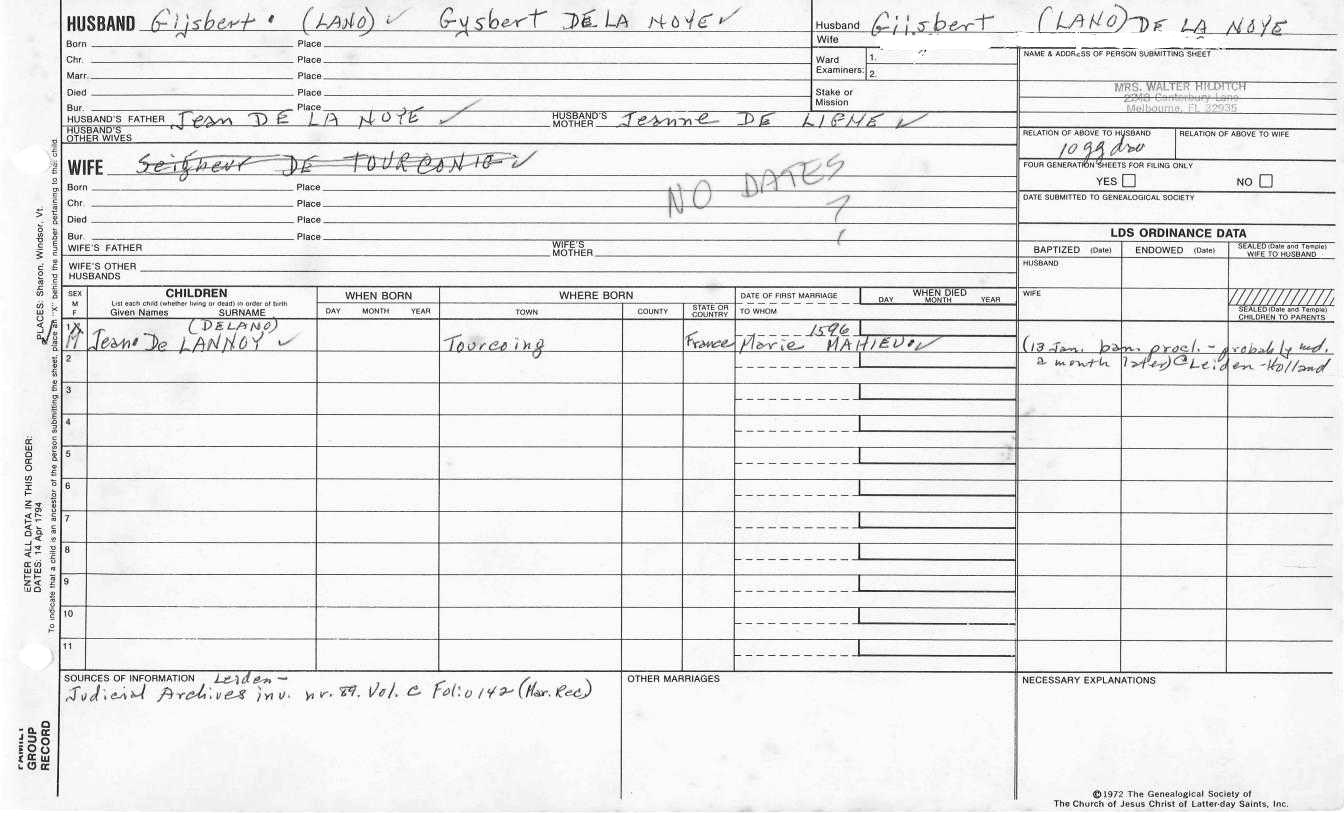 HUSBAND Gijsbert (LANO) ✓ Gysbert DE LA NOYE ✓
Born Place
Chr. Place
Marr. Place
Died Place
Bur. Place
HUSBAND'S FATHER Jean DE LA NOYE ✓ HUSBAND'S MOTHER Jeanne DE LIGNE ✓
HUSBAND'S OTHER WIVES
Husband Gijsbert (LANO) DE LA NOYE
Wife
Ward 1.
Examiners: 2.
Stake or
Mission
NAME & ADDRESS OF PERSON SUBMITTING SHEET
MRS. WALTER HILDITCH
Canterbury Lane
Melbourne, FL 32935
RELATION OF ABOVE TO HUSBAND RELATION OF ABOVE TO WIFE
10 gg dau
FOUR GENERATION SHEETS FOR FILING ONLY
YES NO
DATE SUBMITTED TO GENEALOGICAL SOCIETY
WIFE DE ✓
Born Place
Chr. Place
Died Place
Bur. Place
NO DATES
?
WIFE'S FATHER WIFE'S MOTHER
WIFE'S OTHER HUSBANDS
LDS ORDINANCE DATA
BAPTIZED (Date) ENDOWED (Date) SEALED (Date and Temple) WIFE TO HUSBAND
HUSBAND
WIFE
SEALED (Date and Temple) CHILDREN TO PARENTS
SEX M F
CHILDREN
List each child (whether living or dead) in order of birth
Given Names SURNAME
WHEN BORN
DAY MONTH YEAR
WHERE BORN
TOWN COUNTY STATE OR COUNTRY
DATE OF FIRST MARRIAGE
TO WHOM
WHEN DIED
DAY MONTH YEAR
(DELANO) 1596
1 X M Jean De LANNOY ✓ Tourcoing France Marie MAHIEU ✓ (13 Jan. ban. procl. - probably md.
a month later) @ Leiden - Holland
2
3
4
5
6
7
8
9
10
11
SOURCES OF INFORMATION Leiden-
Judicial Archives inv. nr. 89. Vol. C Folio 142 (Mar. Rec)
OTHER MARRIAGES
NECESSARY EXPLANATIONS
©1972 The Genealogical Society of
The Church of Jesus Christ of Latter-day Saints, Inc.
ENTER ALL DATA IN THIS ORDER:
DATES: 14 Apr 1794
PLACES: Sharon, Windsor, Vt.
To indicate that a child is an ancestor of the person submitting the sheet, place an "X" behind the number pertaining to that child.
FAMILY
GROUP
RECORD